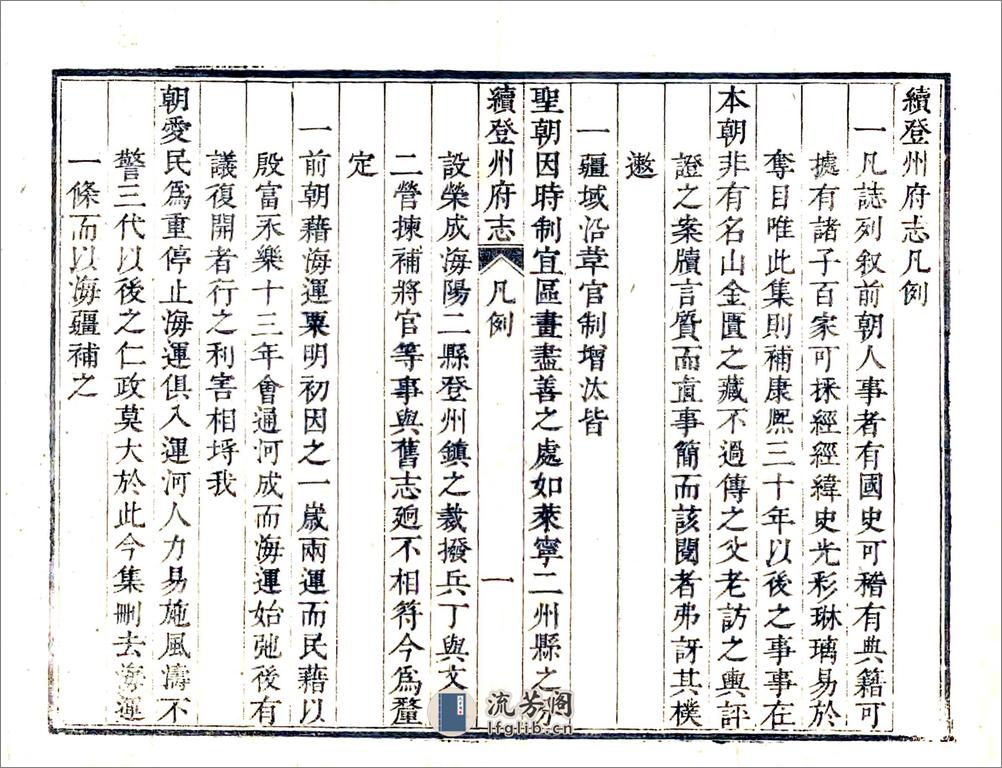 續登州府志凡例
一凡誌列叙前朝人事者有國史可稽有典籍可
據有諸子百家可採經經緯史光彩琳璃易於
奪目唯此集則補康熈三十年以後之事事在
本朝非有名山金匱之藏不過傳之父老訪之輿評
證之案牘言質而直事簡而該閱者弗訝其樸
遬
一疆域沿革官制增汰皆
聖朝因時制宜區畫盡善之處如萊寧二州縣之
續登州府志 凡例 一
設榮成海陽二縣登州鎮之裁撥兵丁與文
二營揀補將官等事與舊志廻不相符今為釐
定
一前朝藉海運粟明初因之一歲兩運而民藉以
殷富永樂十三年會通河成而海運始弛後有
議復開者行之利害相埓我
朝愛民為重停止海運俱入運河人力易施風濤不
警三代以後之仁政莫大於此今集刪去海運
一條而以海疆補之
流芳阁
lfglib.cn